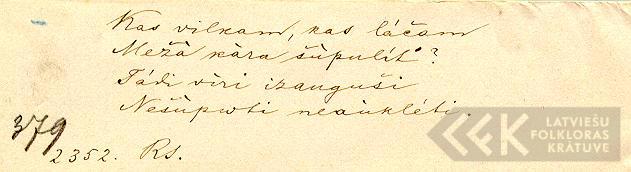 Kas vilkam, kas láčam
Mežâ kâra šûpulit?
Tádi viri izauguši
Nešûpwti neaûkléti.
379
2352. Rs.
LATVIEŠU
FOLKLORAS
KRĀTUVE